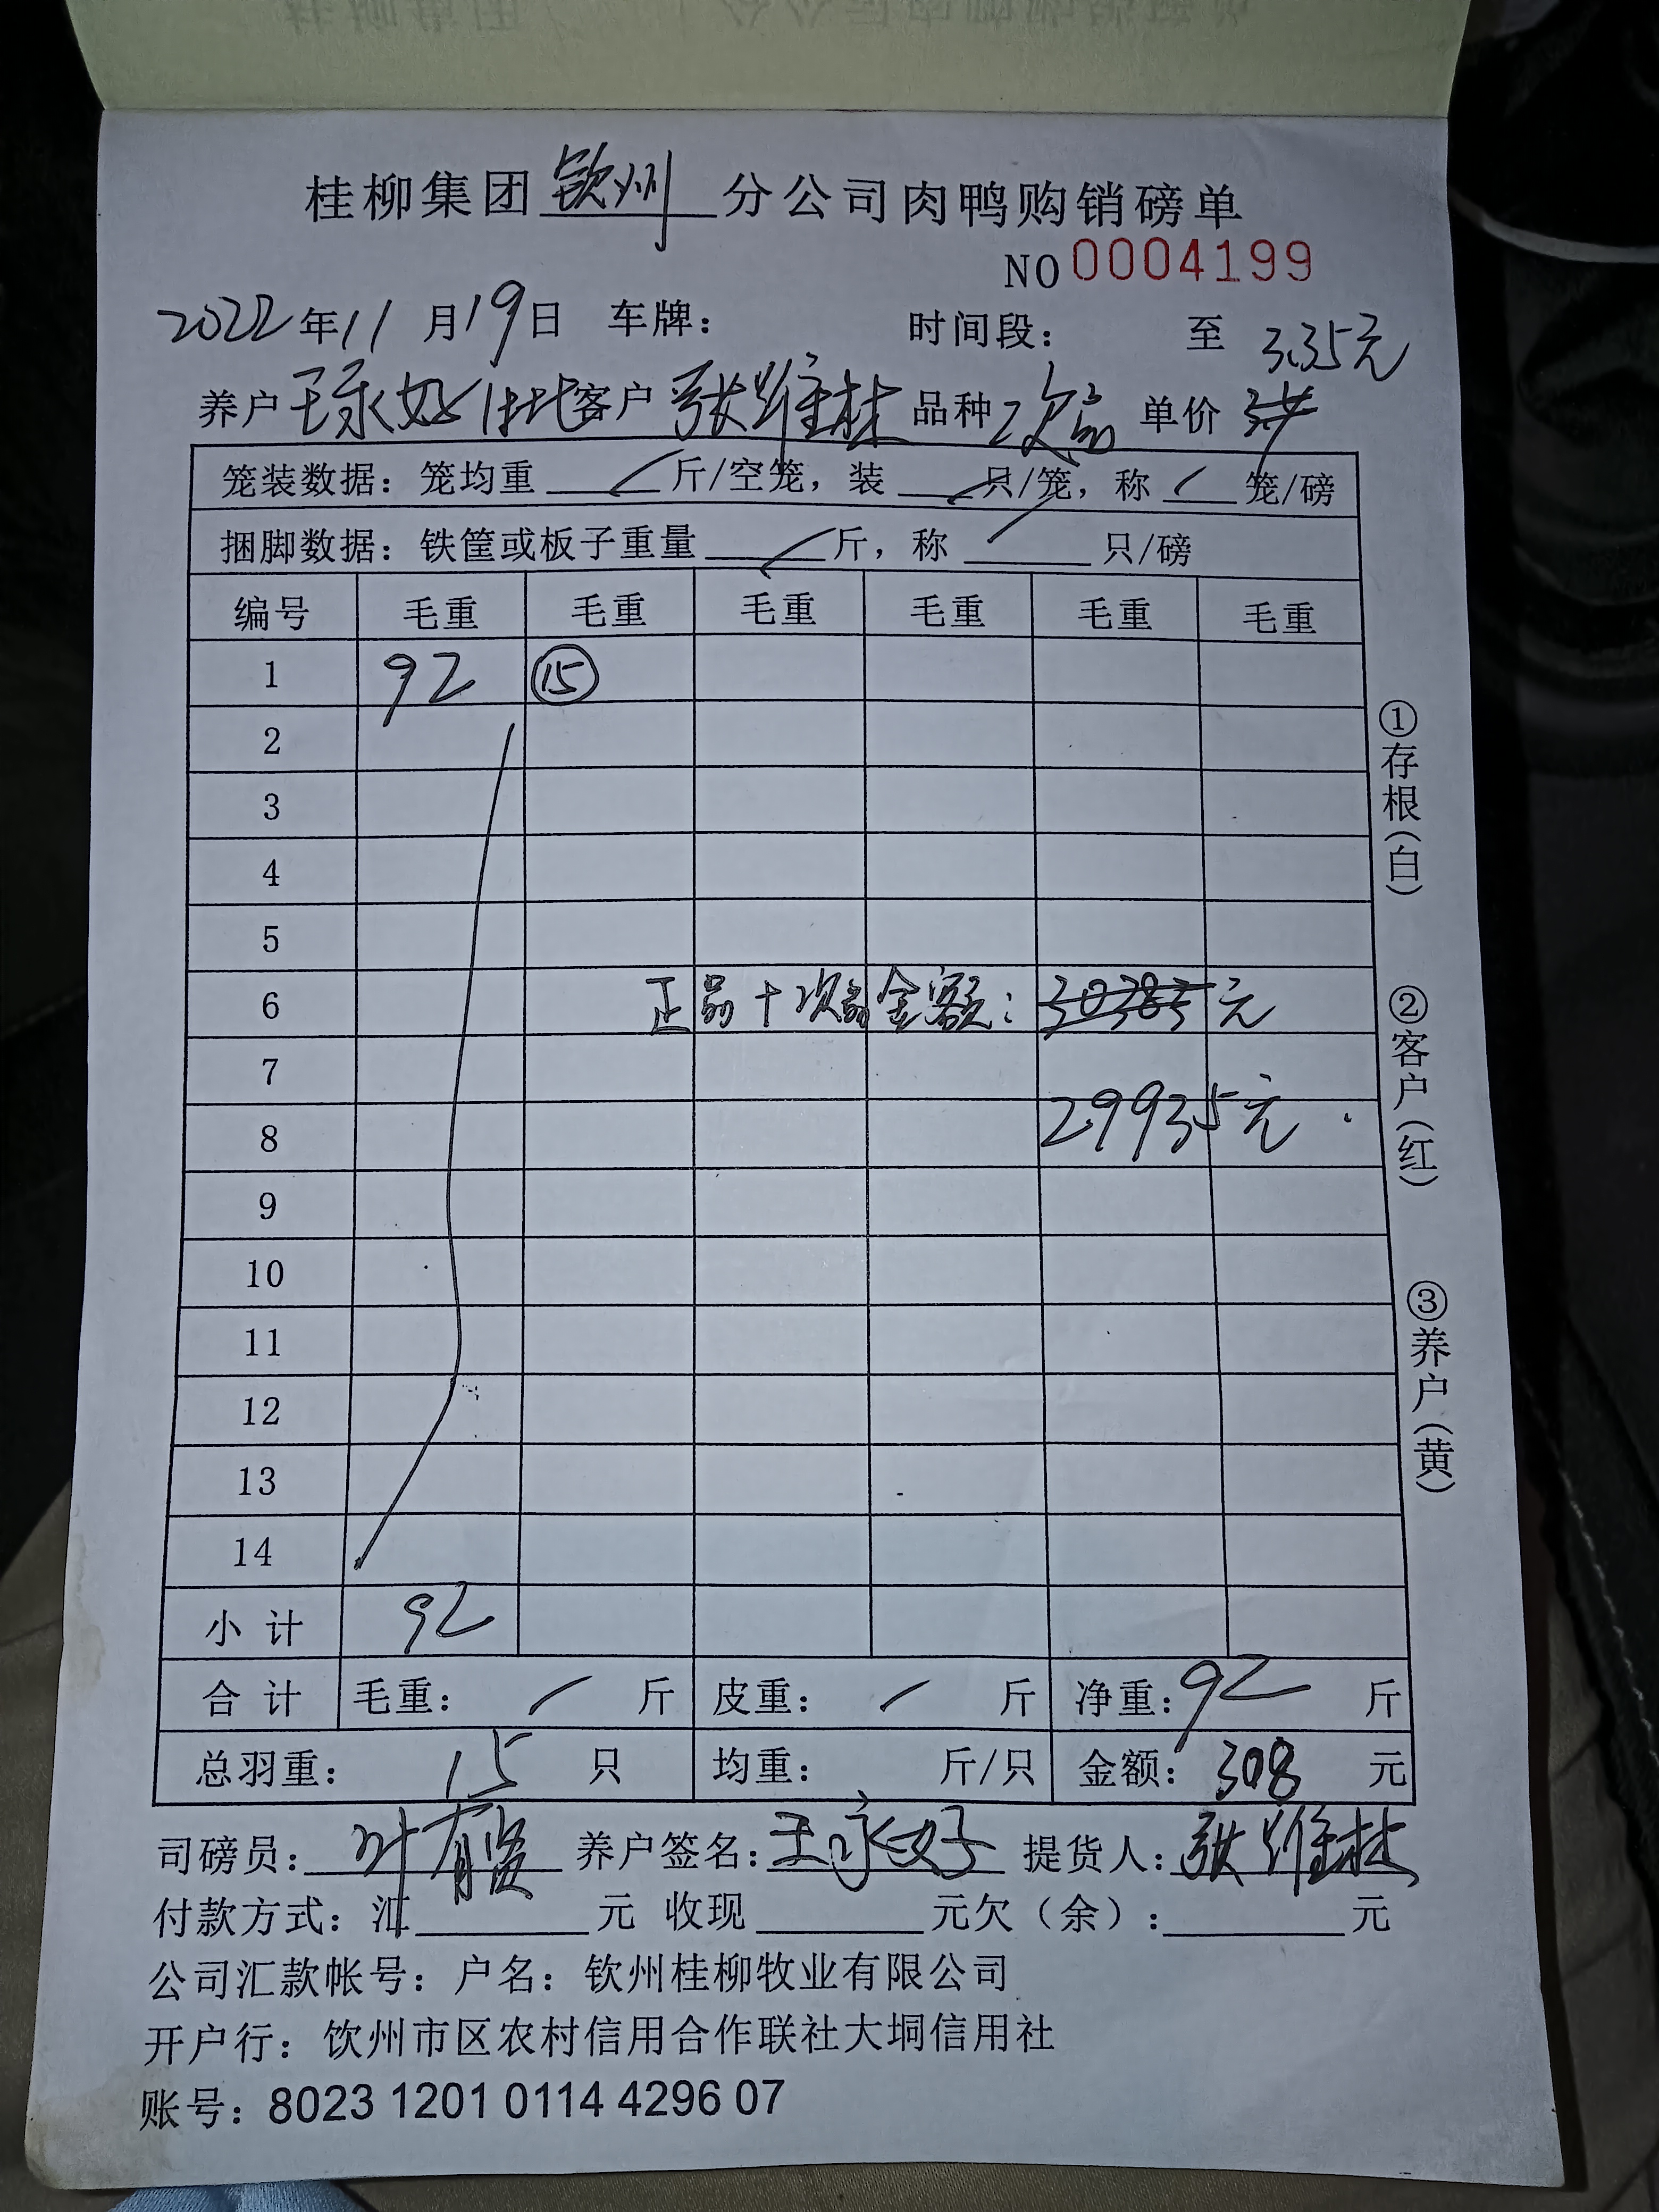 桂柳集团钦州分公司肉鸭购销磅单
NO 0004199
2022年11月19日 车牌: 时间段: 至 3.35元
养户王永好 批客户张维林品种次品 单价
笼装数据:笼均重 斤/空笼,装 只/笼,称 笼/磅
捆脚数据:铁筐或板子重量 斤,称 只/磅
编号 毛重 毛重 毛重 毛重 毛重 毛重
1 92 ⑮
2
3
4
5
6 正品+次品金额: 30385元
7
8 29935元
9
10
11
12
13
14
小计 92
合计 毛重: 斤 皮重: 斤 净重:92 斤
总羽重: 15 只 均重: 斤/只 金额: 308 元
司磅员:叶有贤 养户签名:王永好 提货人:张维林
付款方式:汇 元 收现 元欠(余): 元
公司汇款帐号:户名:钦州桂柳牧业有限公司
开户行:钦州市区农村信用合作联社大垌信用社
账号:8023 1201 0114 4296 07
①存根(白)
②客户(红)
③养户(黄)